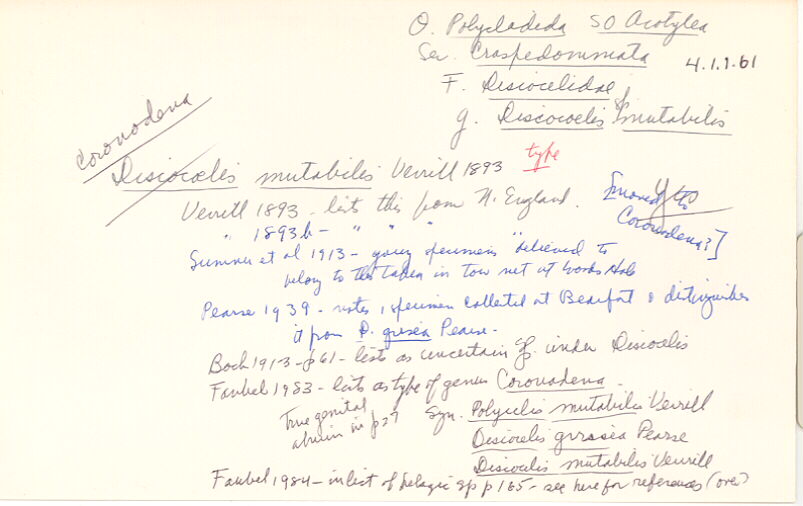 O. Polycladida SO Acotylea
Sec. Craspedommata 4.1.1.61
F. Discocelidae
g. Discocoelis mutabilis
Coronadena
Discocoelis mutabilis Verrill 1893 type
Verrill 1893 - lists this from N. England. [moved to
" 1893b - " " " Coronadena?]
yes
Sumner et al 1913 - young specimens "believed to
belong to this taken in tow net at Woods Hole
Pearse 1939 - notes 1 specimen collected at Beaufort & distinguishes
it from D. grisea Pearse.
Bock 1913 - p61 - lists as uncertain sp. under Discocelis
Faubel 1983 - lists as type of genus Coronadena.
True genital
in p27
Syn. Polycelis mutabilis Verrill
Discocelis grisea Pearse
Discocelis mutabilis Verrill
Faubel 1984 - in list of pelagic sp p 165 - see here for references (over)